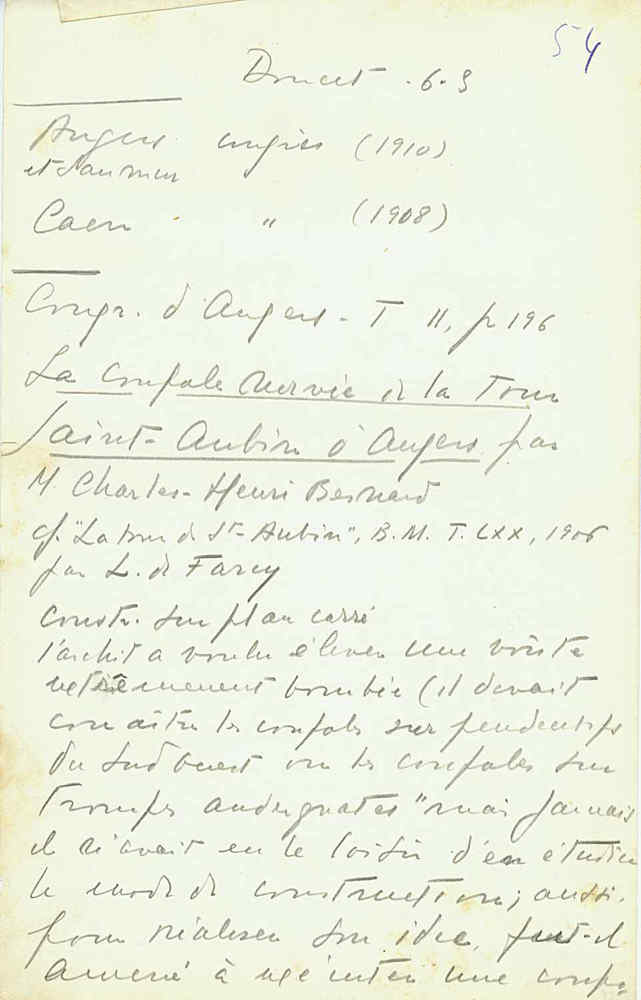 54
Doucet. 6-3
Angers congrès (1910)
et Saumur
Caen " (1908)
Congr. d'Angers - T II, p 196
La coupole nervée de la Tour
Saint-Aubin d'Angers par
M. Charles-Henri Besnard
cf. "La tour de St-Aubin", B.M. T. LXX, 1906
par L. de Farcy
Constr. sur plan carré
l'archit a voulu élever une voûte
extrêmement bombée (il devait
connaître les coupoles sur pendentifs
du Sud Ouest ou les coupoles sur
trompes "mais jamais
il n'avait eu le loisir d'en étudier
le mode de construction; aussi,
pour réaliser son idée, fut-il
amené à exécuter une coupo